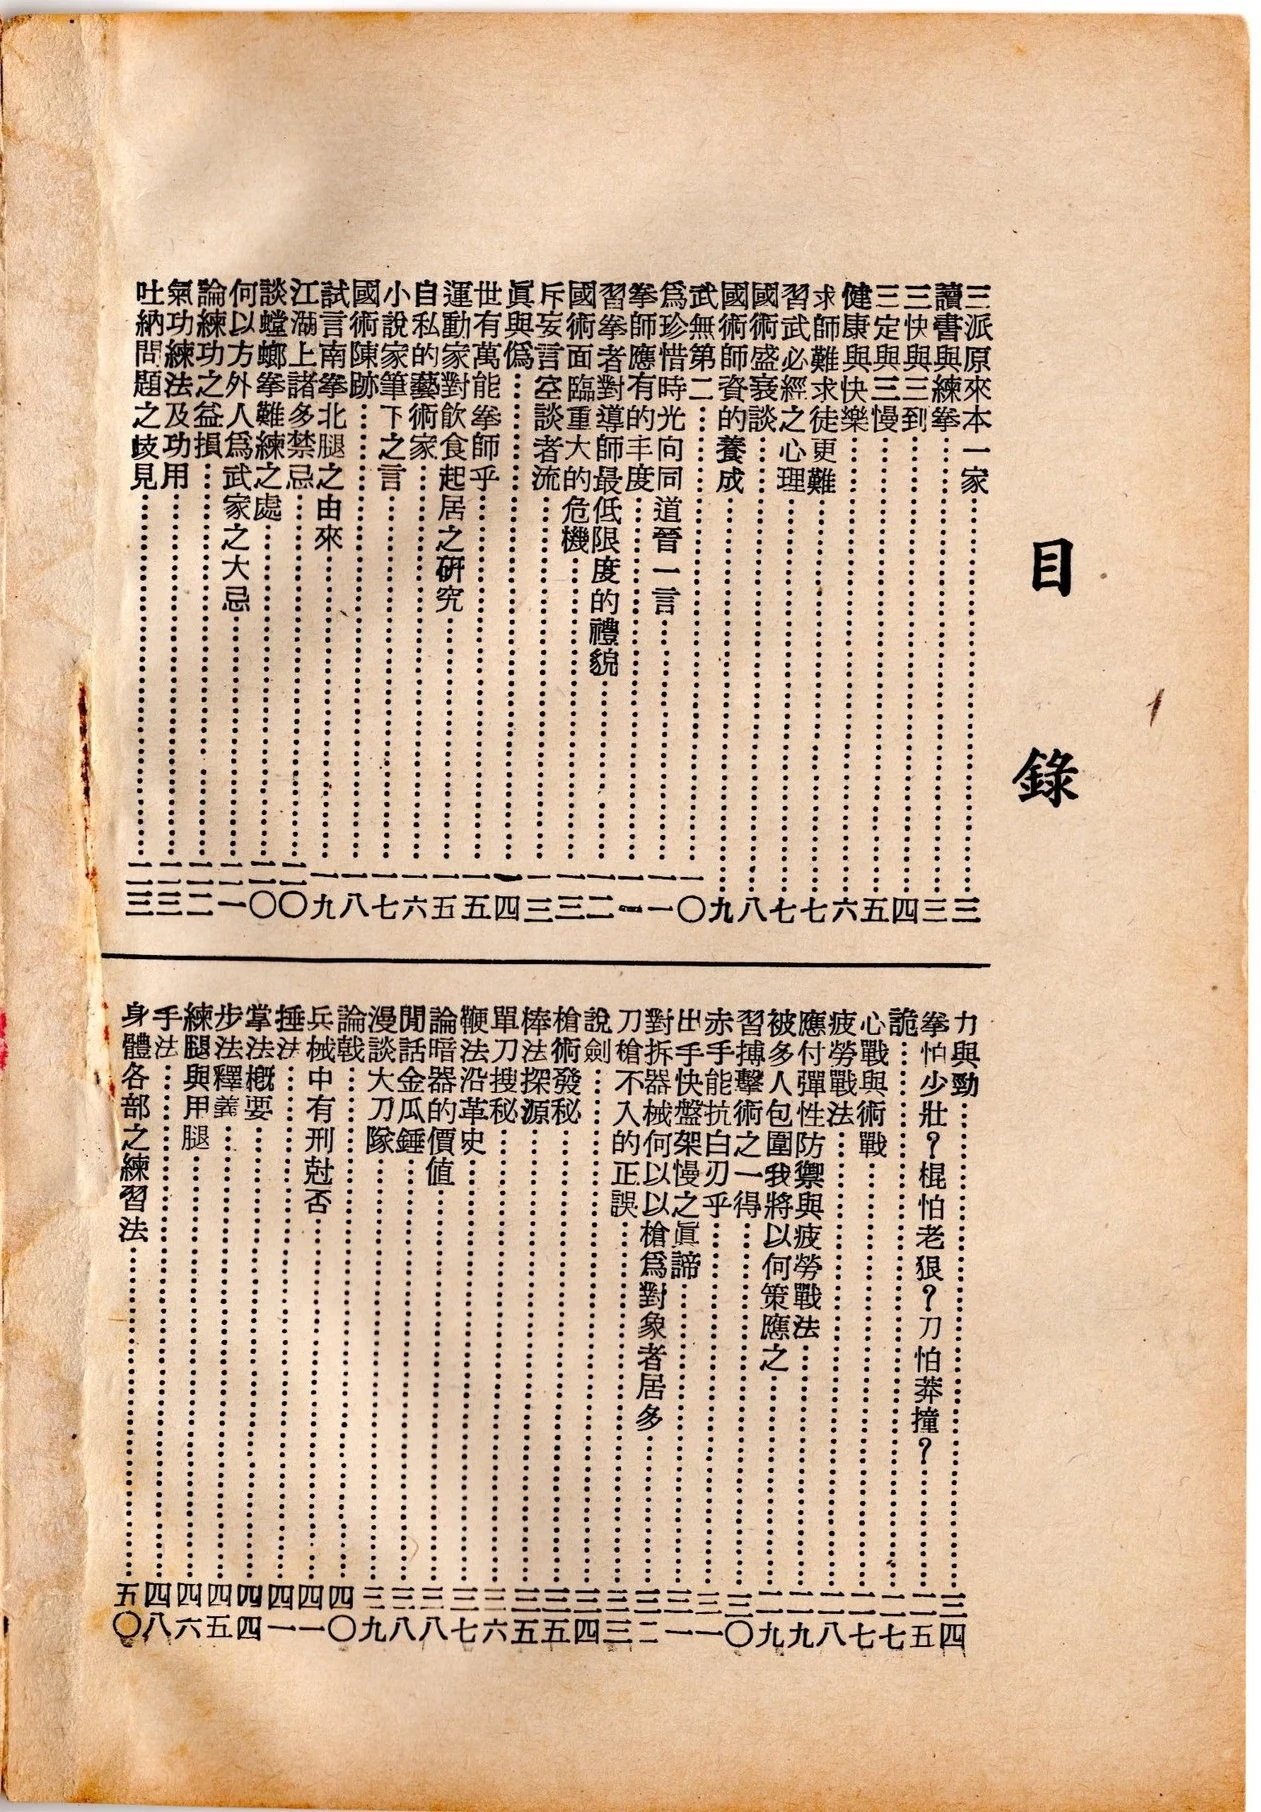 目錄
三派原來本一家……三
讀書與練拳……三
三快與三到……四
三定與三慢……五
健康與快樂……六
求師難求徒更難……七
習武必經之心理……七
國術盛衰談……八
國術師資的養成……九
武無第二……一〇
爲珍惜時光向同道晉一言……一一
拳師應有的丰度……一一
習拳者對導師最低限度的禮貌……一二
國術面臨重大的危機……一三
斥妄言空談者流……一三
眞與僞……一四
世有萬能拳師乎……一五
運動家對飲食起居之研究……一五
自私的藝術家……一六
小說家筆下之言……一七
國術陳跡……一八
試言南拳北腿之由來……一九
江湖上諸多禁忌……二〇
談螳螂拳難練之處……二〇
何以方外人爲武家之大忌……二一
論練功之益損……二二
氣功練法及功用……二三
吐納問題之歧見……二三
力與勁……二四
拳怕少壯?棍怕老狠?刀怕莽撞?……二五
詭……二七
心戰與術戰……二七
疲勞戰法……二八
應付彈性防禦與疲勞戰法……二九
被多人包圍我將以何策應之……二九
習搏擊術之一得……三〇
赤手能抗白刃乎……三一
出手快盤架慢之眞諦……三一
對拆器械何以以槍爲對象者居多……三二
刀槍不入的正誤……三三
說劍……三四
槍術發秘……三五
棒法探源……三五
單刀搜秘……三六
鞭法沿革史……三七
論暗器的價值……三八
閒話金瓜錘……三八
漫談大刀隊……三九
論戟……四〇
兵械中有刑尅否……四一
捶法……四一
掌法概要……四四
步法釋義……四五
練腿與用腿……四六
手法……四八
身體各部之練習法……五〇